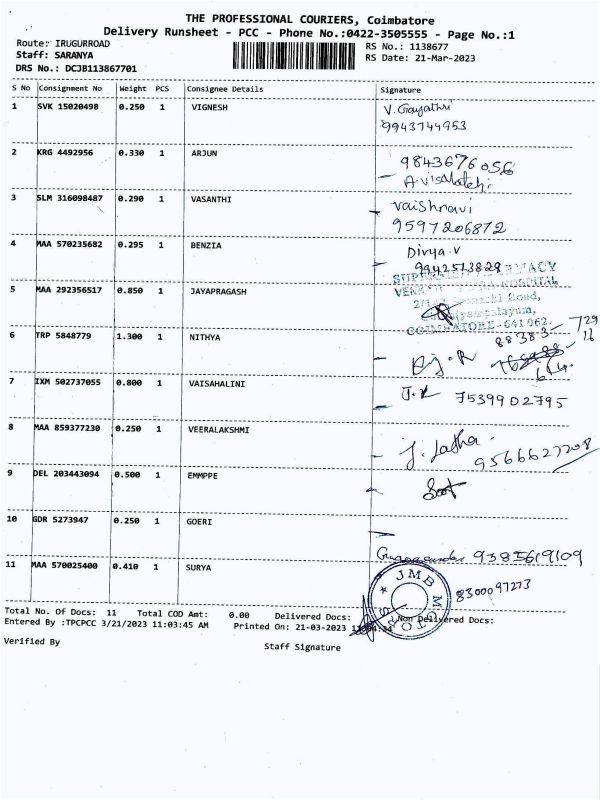 THE PROFESSIONAL COURIERS, Coimbatore
Delivery Runsheet - PCC - Phone No.:0422-3505555 - Page No.:1
Route: IRUGURROAD
RS No.: 1138677
Staff: SARANYA
RS Date: 21-Mar-2023
DRS No.: DCJB113867701
S No Consignment No Weight PCS Consignee Details Signature
1 SVK 15020498 0.250 1 VIGNESH V. Gayathri
9943744953
2 KRG 4492956 0.330 1 ARJUN 9843676056
A visalatchi
3 SLM 316098487 0.290 1 VASANTHI Vaishnavi
9597206872
4 MAA 570235682 0.295 1 BENZIA Divya.V
9942573829
5 MAA 292356517 0.850 1 JAYAPRAGASH
COIMBATORE - 641 062
6 TRP 5848779 1.300 1 NITHYA 88383 - 729
7 IXM 502737055 0.800 1 VAISAHALINI 7539902795
8 MAA 859377230 0.250 1 VEERALAKSHMI J. Latha
9566627708
9 DEL 203443094 0.500 1 EMMPPE
10 GDR 5273947 0.250 1 GOERI
9385619109
11 MAA 570025400 0.410 1 SURYA JMB MOTORS 8300097273
Total No. Of Docs: 11 Total COD Amt: 0.00 Delivered Docs: Non Delivered Docs:
Entered By :TPCPCC 3/21/2023 11:03:45 AM Printed On: 21-03-2023
Verified By
Staff Signature